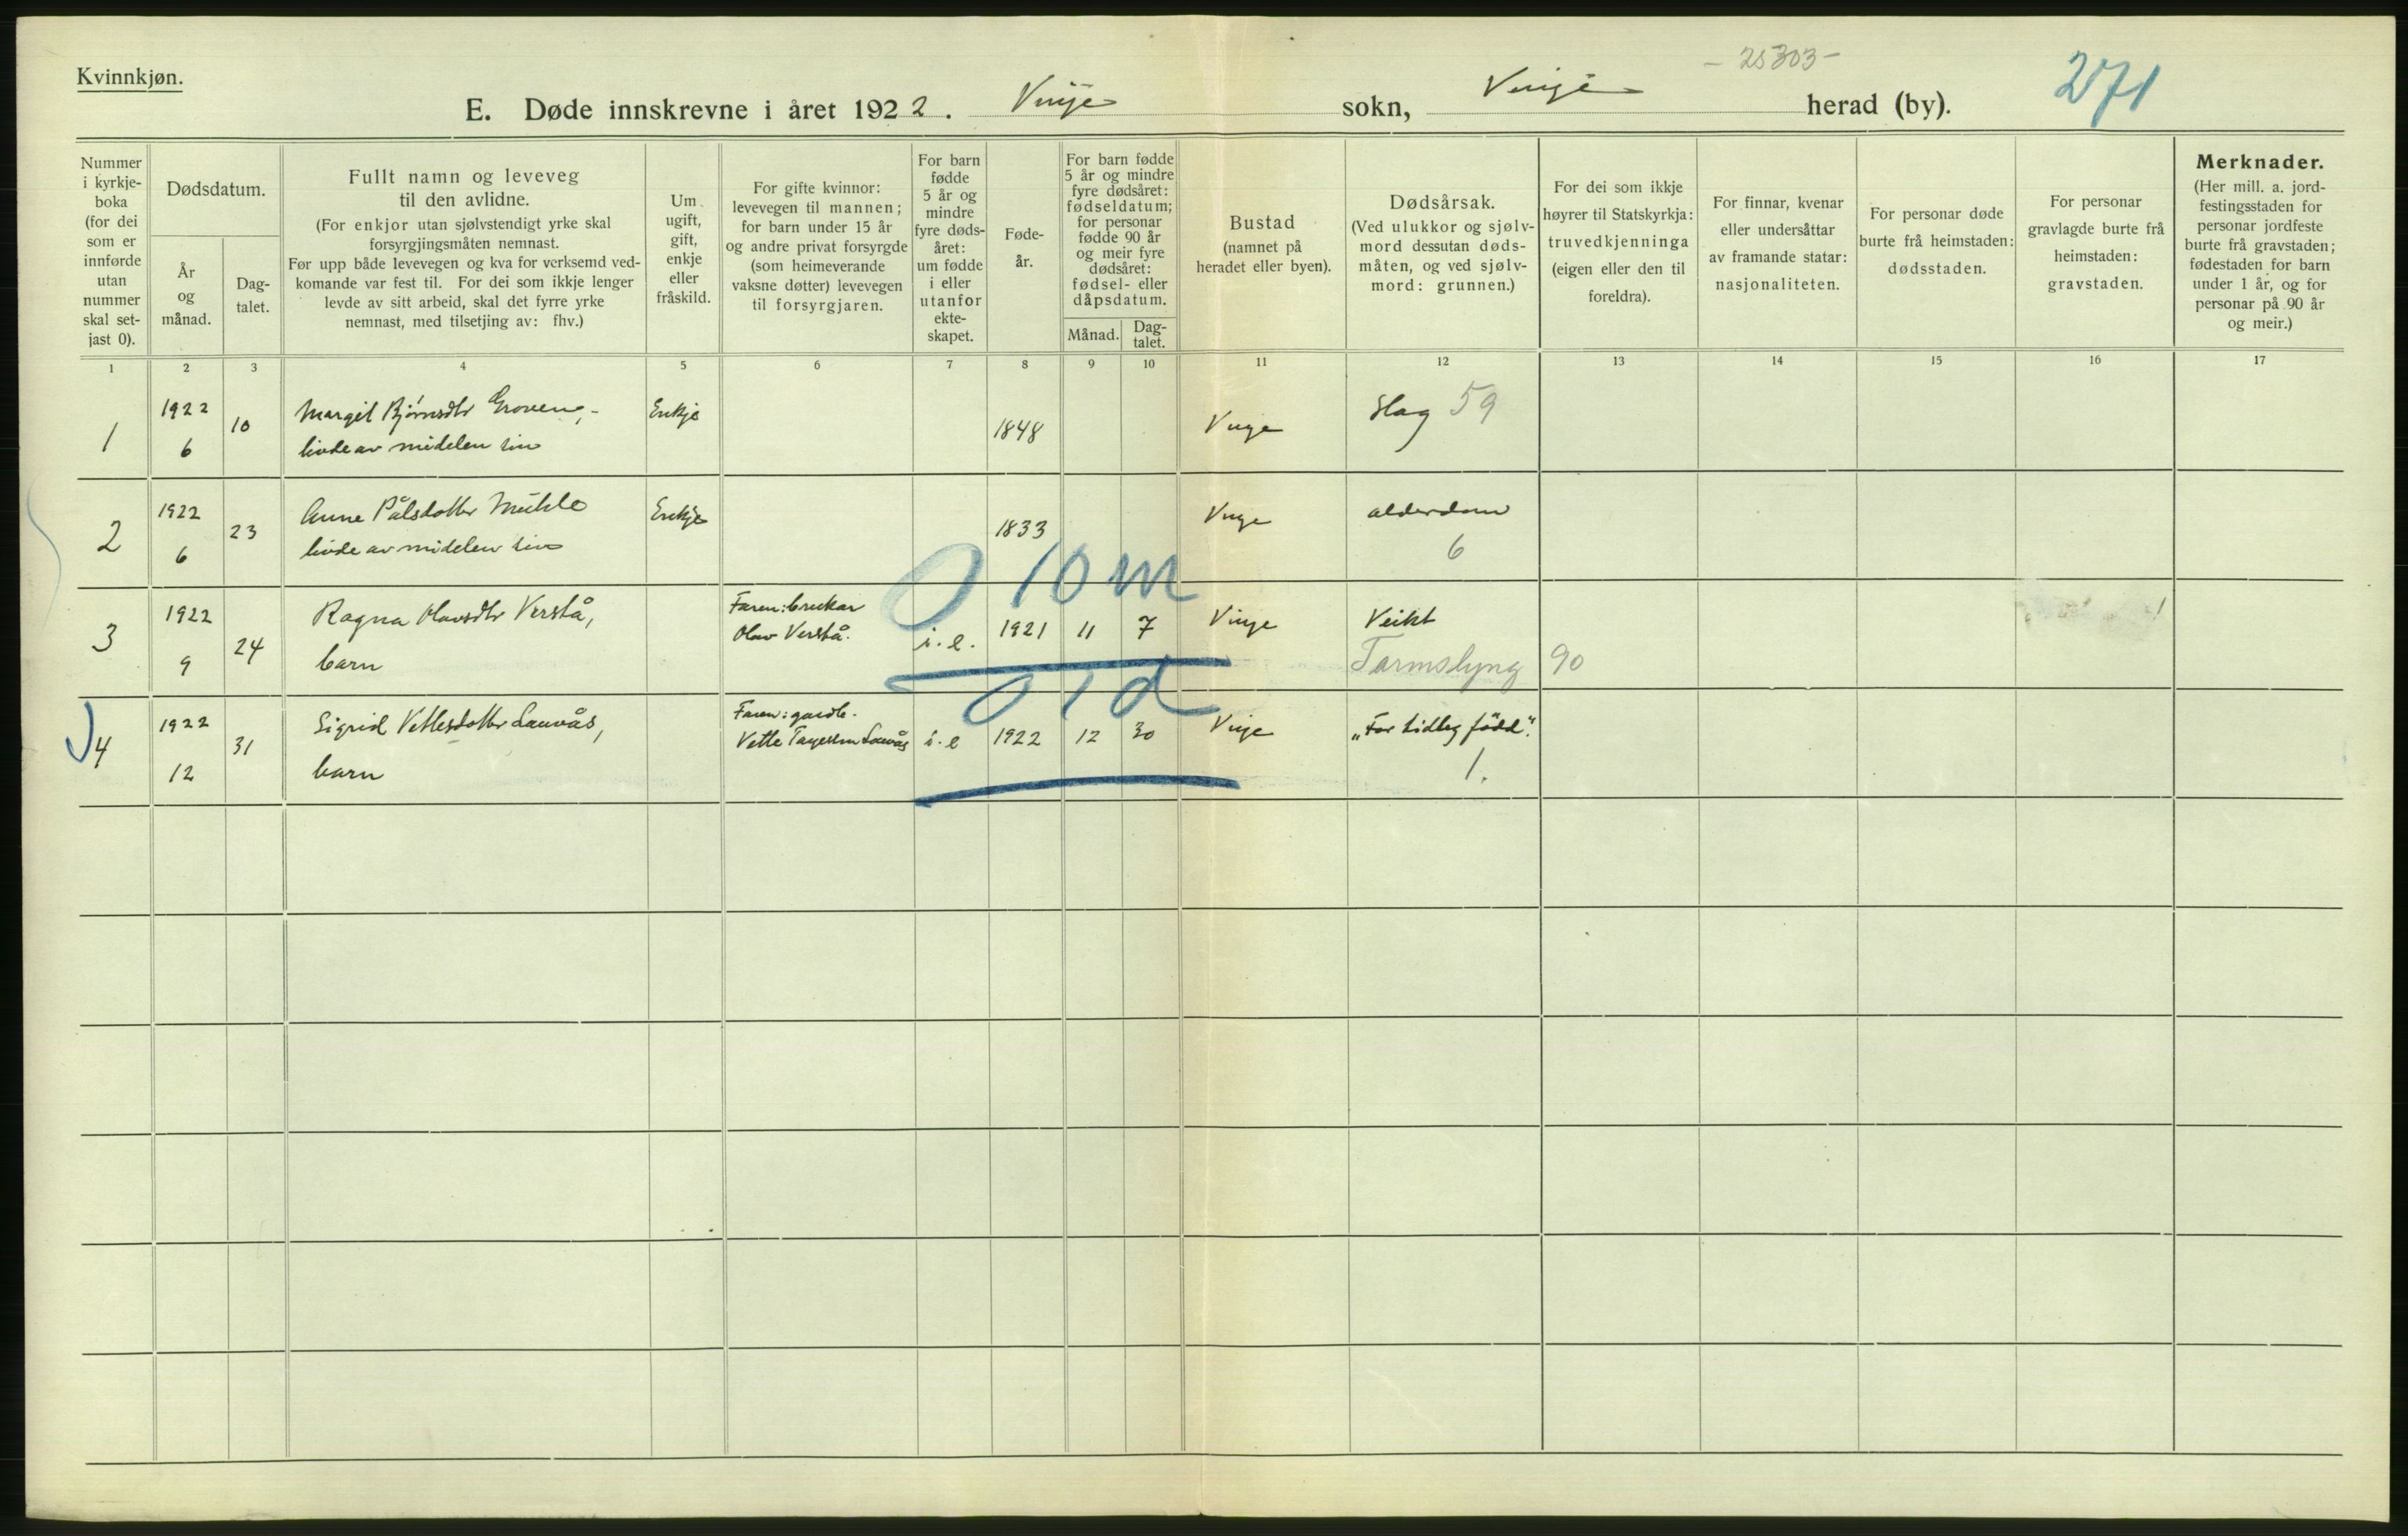 Kvinnkjøn.
- 25303 -
271
E. Døde innskrevne i året 1922. Vinje sokn, Vinje herad (by).
Nummer i kyrkje-boka (for dei som er innførde utan nummer skal set-jast 0).
Dødsdatum.
År og månad.
Dag-talet.
Fullt namn og leveveg til den avlidne.
(For enkjor utan sjølvstendigt yrke skal forsyrgjingsmåten nemnast.
Før upp både levevegen og kva for verksemd ved-komande var fest til. For dei som ikkje lenger levde av sitt arbeid, skal det fyrre yrke nemnast, med tilsetjing av: fhv.)
Um ugift, gift, enkje eller fråskild.
For gifte kvinnor: levevegen til mannen; for barn under 15 år og andre privat forsyrgde (som heimeverande vaksne døtter) levevegen til forsyrgjaren.
For barn fødde 5 år og mindre fyre døds-året: um fødde i eller utanfor ekte-skapet.
Føde-år.
For barn fødde 5 år og mindre fyre dødsåret: fødseldatum; for personar fødde 90 år og meir fyre dødsåret: fødsel- eller dåpsdatum.
Månad.
Dag-talet.
Bustad (namnet på heradet eller byen).
Dødsårsak.
(Ved ulukkor og sjølv-mord dessutan døds-måten, og ved sjølv-mord: grunnen.)
For dei som ikkje høyrer til Statskyrkja: truvedkjenninga (eigen eller den til foreldra).
For finnar, kvenar eller undersåttar av framande statar: nasjonaliteten.
For personar døde burte frå heimstaden: dødsstaden.
For personar gravlagde burte frå heimstaden: gravstaden.
Merknader.
(Her mill. a. jord-festingsstaden for personar jordfeste burte frå gravstaden; fødestaden for barn under 1 år, og for personar på 90 år og meir.)
1 2 3 4 5 6 7 8 9 10 11 12 13 14 15 16 17
1 1922 6 10 Margit Bjørnsdtr Groven, - livde av midelen sin Enkje 1848 Vinje Slag 59
2 1922 6 23 Anne Pålsdotter livde av midelen sin Enkje 1833 Vinje alderdom 6
0 10 m
3 1922 9 24 Ragna Olavsdtr Verstå, barn Faren: brukar Olav Verstå. i. e. 1921 11 7 Vinje Veikt Tarmslyng 90
0 1 d
4 1922 12 31 Sigrid Vetlesdotter Lauvås, barn Faren: gardb. Vetle Lauvås i. e 1922 12 30 Vinje "For tidleg fødd". 1.